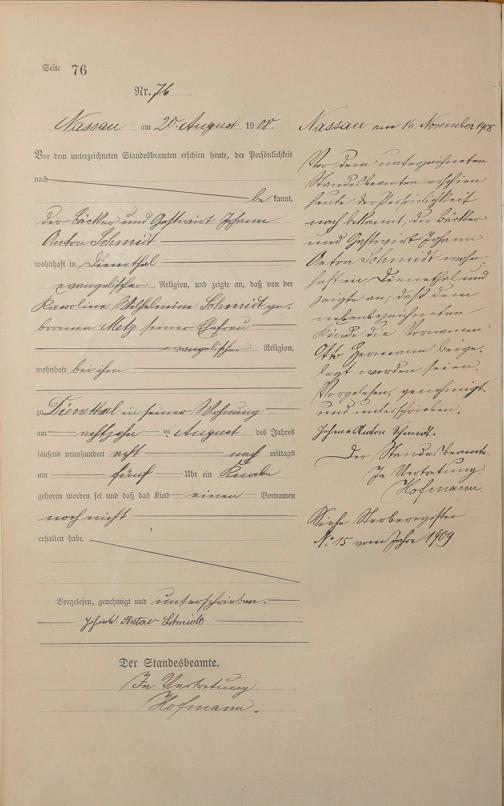 Seite 76
Nr. 76
Nassau am 20. August 1908.
Vor dem unterzeichneten Standesbeamten erschien heute, der Persönlichkeit
nach
be kannt,
der Bäcker und Gastwirt Johann
Anton Schmidt
wohnhaft in Dienethal
evangelischer Religion, und zeigte an, daß von der
Karoline Wilhelmine Schmidt ge-
borenen Metz seiner Ehefrau
evangelischer Religion,
wohnhaft bei ihm
zu Dienethal in seiner Wohnung
am achtzehn ten August des Jahres
tausend neunhundert acht nach mittags
um fünf Uhr ein Knabe
geboren worden sei und daß das Kind einen Vornamen
noch nicht
erhalten habe.
Vorgelesen, genehmigt und unterschrieben.
Johann Anton Schmidt
Der Standesbeamte.
In Vertretung
Hofmann.
Nassau am 16. November 1908
Vor dem unterzeichneten
Standesbeamten erschien
heute der Persönlichkeit
nach bekannt, der Bäcker
und Gastwirt Johann
Anton Schmidt wohn-
haft in Dienethal und
zeigte an, daß dem
nebenbezeichneten
Kinde die Vornamen
Otto Hermann beige-
legt worden seien.
Vorgelesen, genehmigt
und unterschrieben.
Johann Anton Schmidt.
Der Standesbeamte.
In Vertretung
Hofmann.
Siehe Sterberegister
No 15 vom Jahre 1909